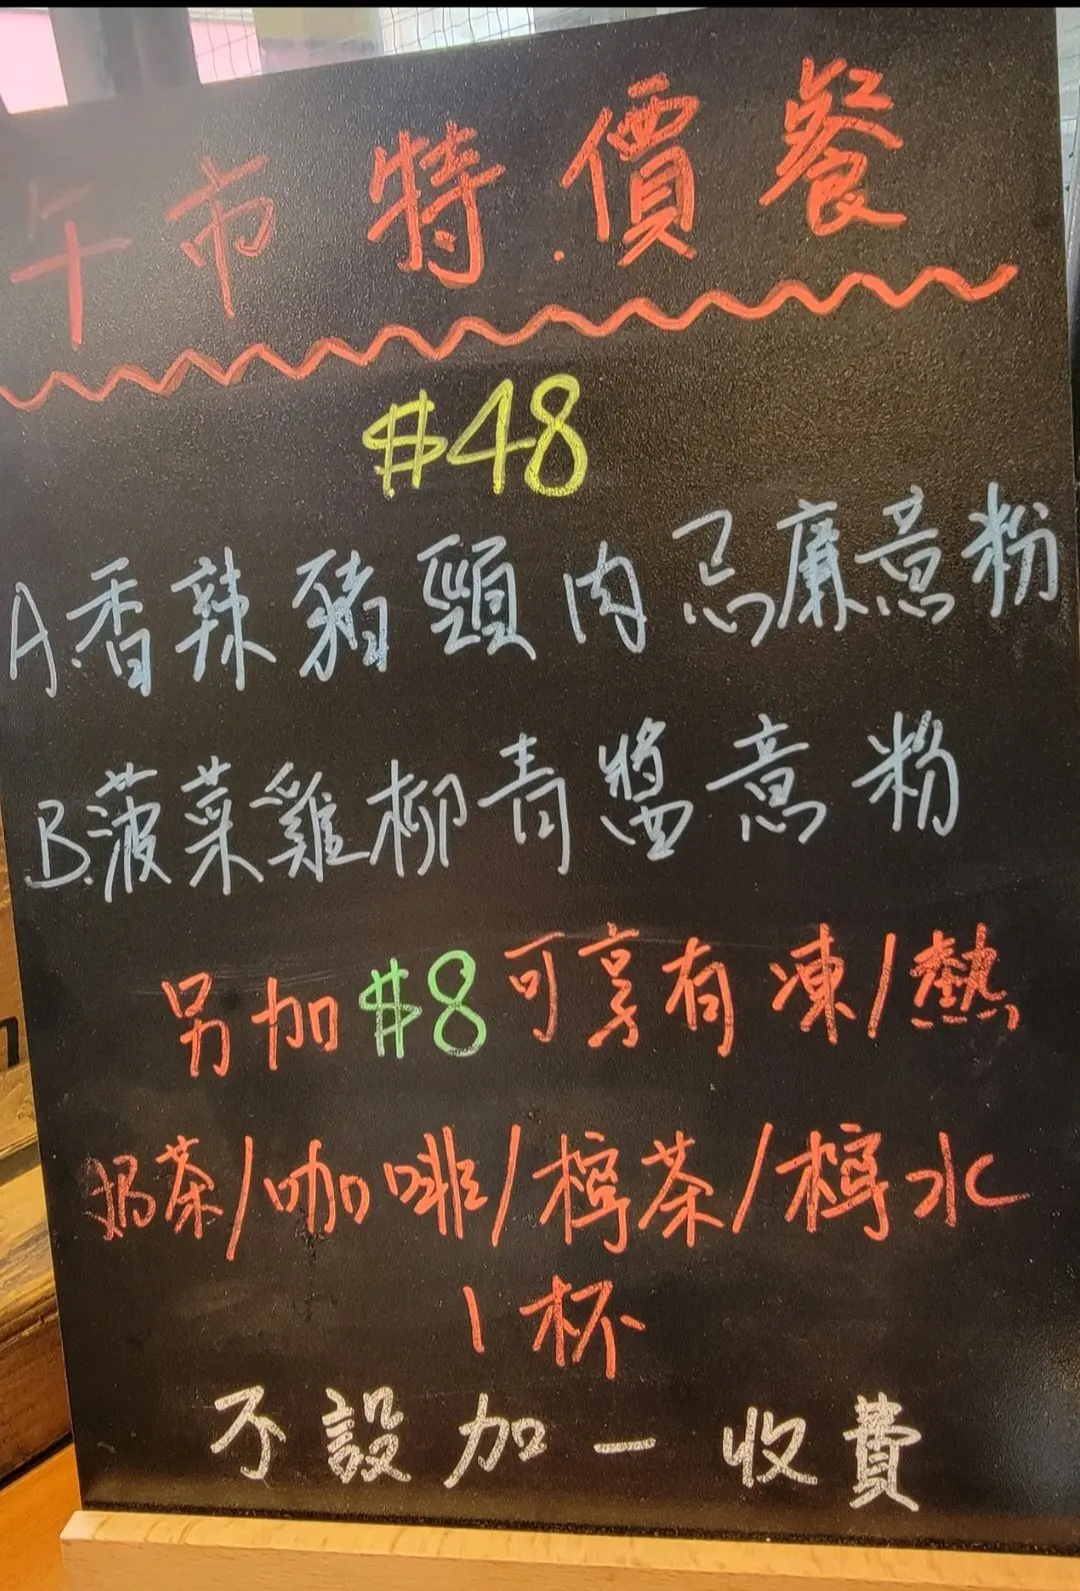 午市特價餐
$48
A.香辣豬頸肉忌廉意粉
B.菠菜雞柳青醬意粉
另加$8可享有凍/熱
奶茶/咖啡/檸茶/檸水
1杯
不設加一收費